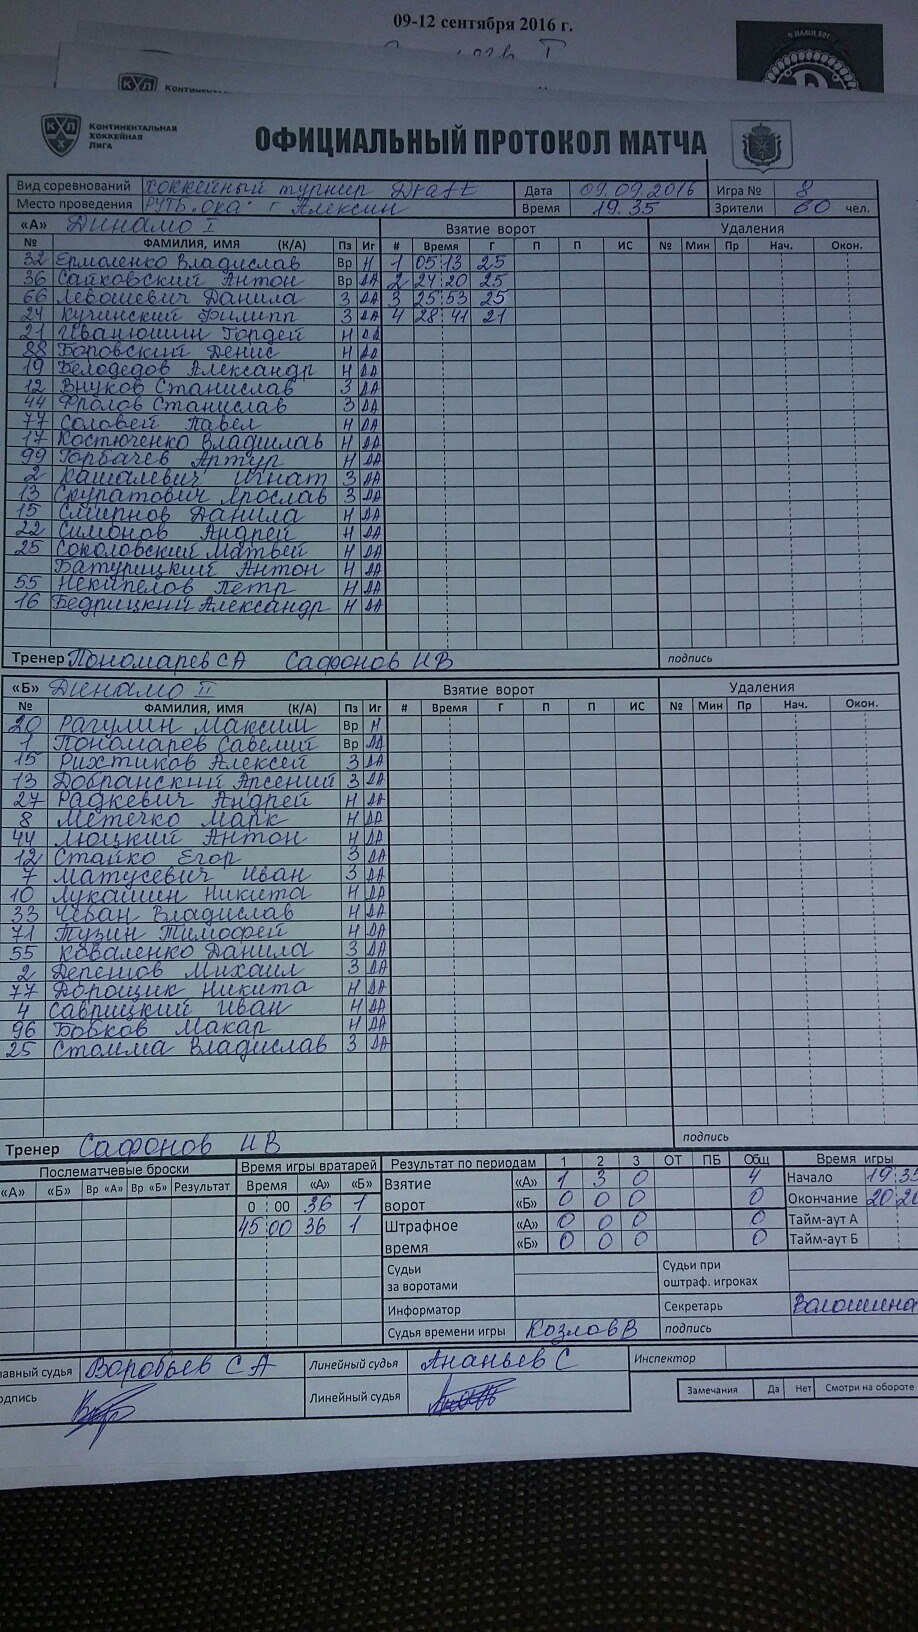 09-12 сентября 2016 г.
КХЛ
КХЛ КОНТИНЕНТАЛЬНАЯ ХОККЕЙНАЯ ЛИГА
ОФИЦИАЛЬНЫЙ ПРОТОКОЛ МАТЧА
Вид соревнований хоккейный турнир Draft Дата 09.09.2016 Игра № 8
Место проведения РУТБ "Ока" г Алексин Время 19.35 Зрители 60 чел.
«А» Динамо I Взятие ворот Удаления
№ ФАМИЛИЯ, ИМЯ (К/А) Пз Иг # Время Г П П ИС № Мин Пр Нач. Окон.
32 Ермоленко Владислав Вр Н 1 05 13 25
36 Сайковский Антон Вр ДА 2 24 20 25
66 Левошевич Данила З ДА 3 25 53 25
24 Кучинский Филипп З ДА 4 28 41 21
21 Иванюшин Гордей Н ДА
88 Боровский Денис Н ДА
19 Белодедов Александр Н ДА
12 Внуков Станислав З ДА
44 Фролов Станислав З ДА
77 Соловей Павел Н ДА
17 Костюченко Владислав Н ДА
99 Горбачев Артур Н ДА
2 Кашалевич Игнат З ДА
13 Скуратович Ярослав З ДА
15 Смирнов Данила Н ДА
22 Симонов Андрей Н ДА
25 Соколовский Матвей Н ДА
Батурицкий Антон Н ДА
55 Некипелов Петр Н ДА
16 Бедрицкий Александр Н ДА
Тренер Пономарев СА Сафонов НВ подпись
«Б» Динамо II Взятие ворот Удаления
№ ФАМИЛИЯ, ИМЯ (К/А) Пз Иг # Время Г П П ИС № Мин Пр Нач. Окон.
20 Рагулин Максим Вр Н
1 Пономарев Савелий Вр ДА
15 Рихтиков Алексей З ДА
13 Добранский Арсений З ДА
27 Радкевич Андрей Н ДА
8 Метечко Марк Н ДА
44 Люцкий Антон Н ДА
12 Стайко Егор З ДА
7 Матусевич Иван З ДА
10 Лукашин Никита Н ДА
33 Чебан Владислав Н ДА
71 Тузин Тимофей Н ДА
55 Коваленко Данила З ДА
2 Дерешов Михаил З ДА
77 Дорощик Никита Н ДА
4 Саврицкий Иван Н ДА
96 Бобков Макар Н ДА
25 Стомма Владислав З ДА
Тренер Сафонов НВ подпись
Послематчевые броски Время игры вратарей Результат по периодам 1 2 3 ОТ ПБ Общ Время игры
«А» «Б» Вр «А» Вр «Б» Результат Время «А» «Б» Взятие ворот «А» 1 3 0 4 Начало 19:35
0 00 36 1 «Б» 0 0 0 0 Окончание 20:20
45 00 36 1 Штрафное время «А» 0 0 0 0 Тайм-аут А
«Б» 0 0 0 0 Тайм-аут Б
Судьи за воротами Судьи при оштраф. игроках
Информатор Секретарь Валошина
Судья времени игры Козлов В подпись
лавный судья Воробьев С А Линейный судья Ананьев С Инспектор
одпись Линейный судья Замечания Да Нет Смотри на обороте